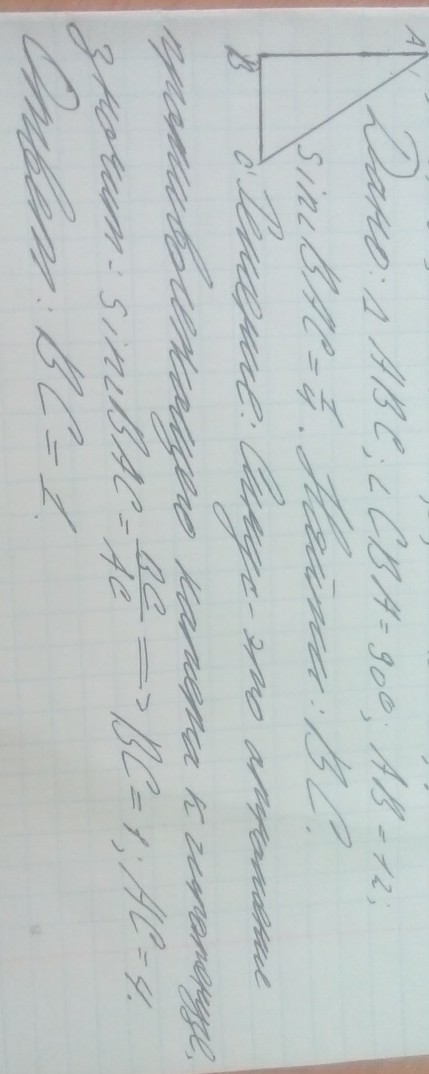 A
B
C
Дано: Δ ABC; ∠CBA = 90°; AB = 12;
sin BAC = 1/4. Найти: BC.
Решение: Синус - это отношение
противолежащего катета к гипотенузе,
значит: sin BAC = BC/AC => BC = 1; AC = 4.
Ответ: BC = 1.